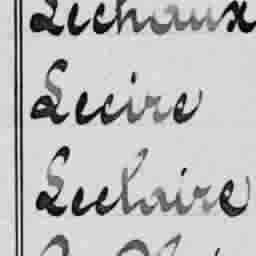 Lechaux
Lecire
Leclaire